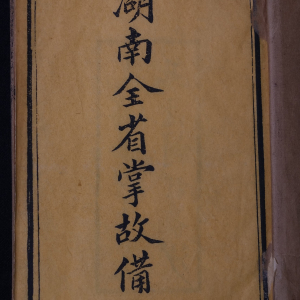 湖南全省掌故備